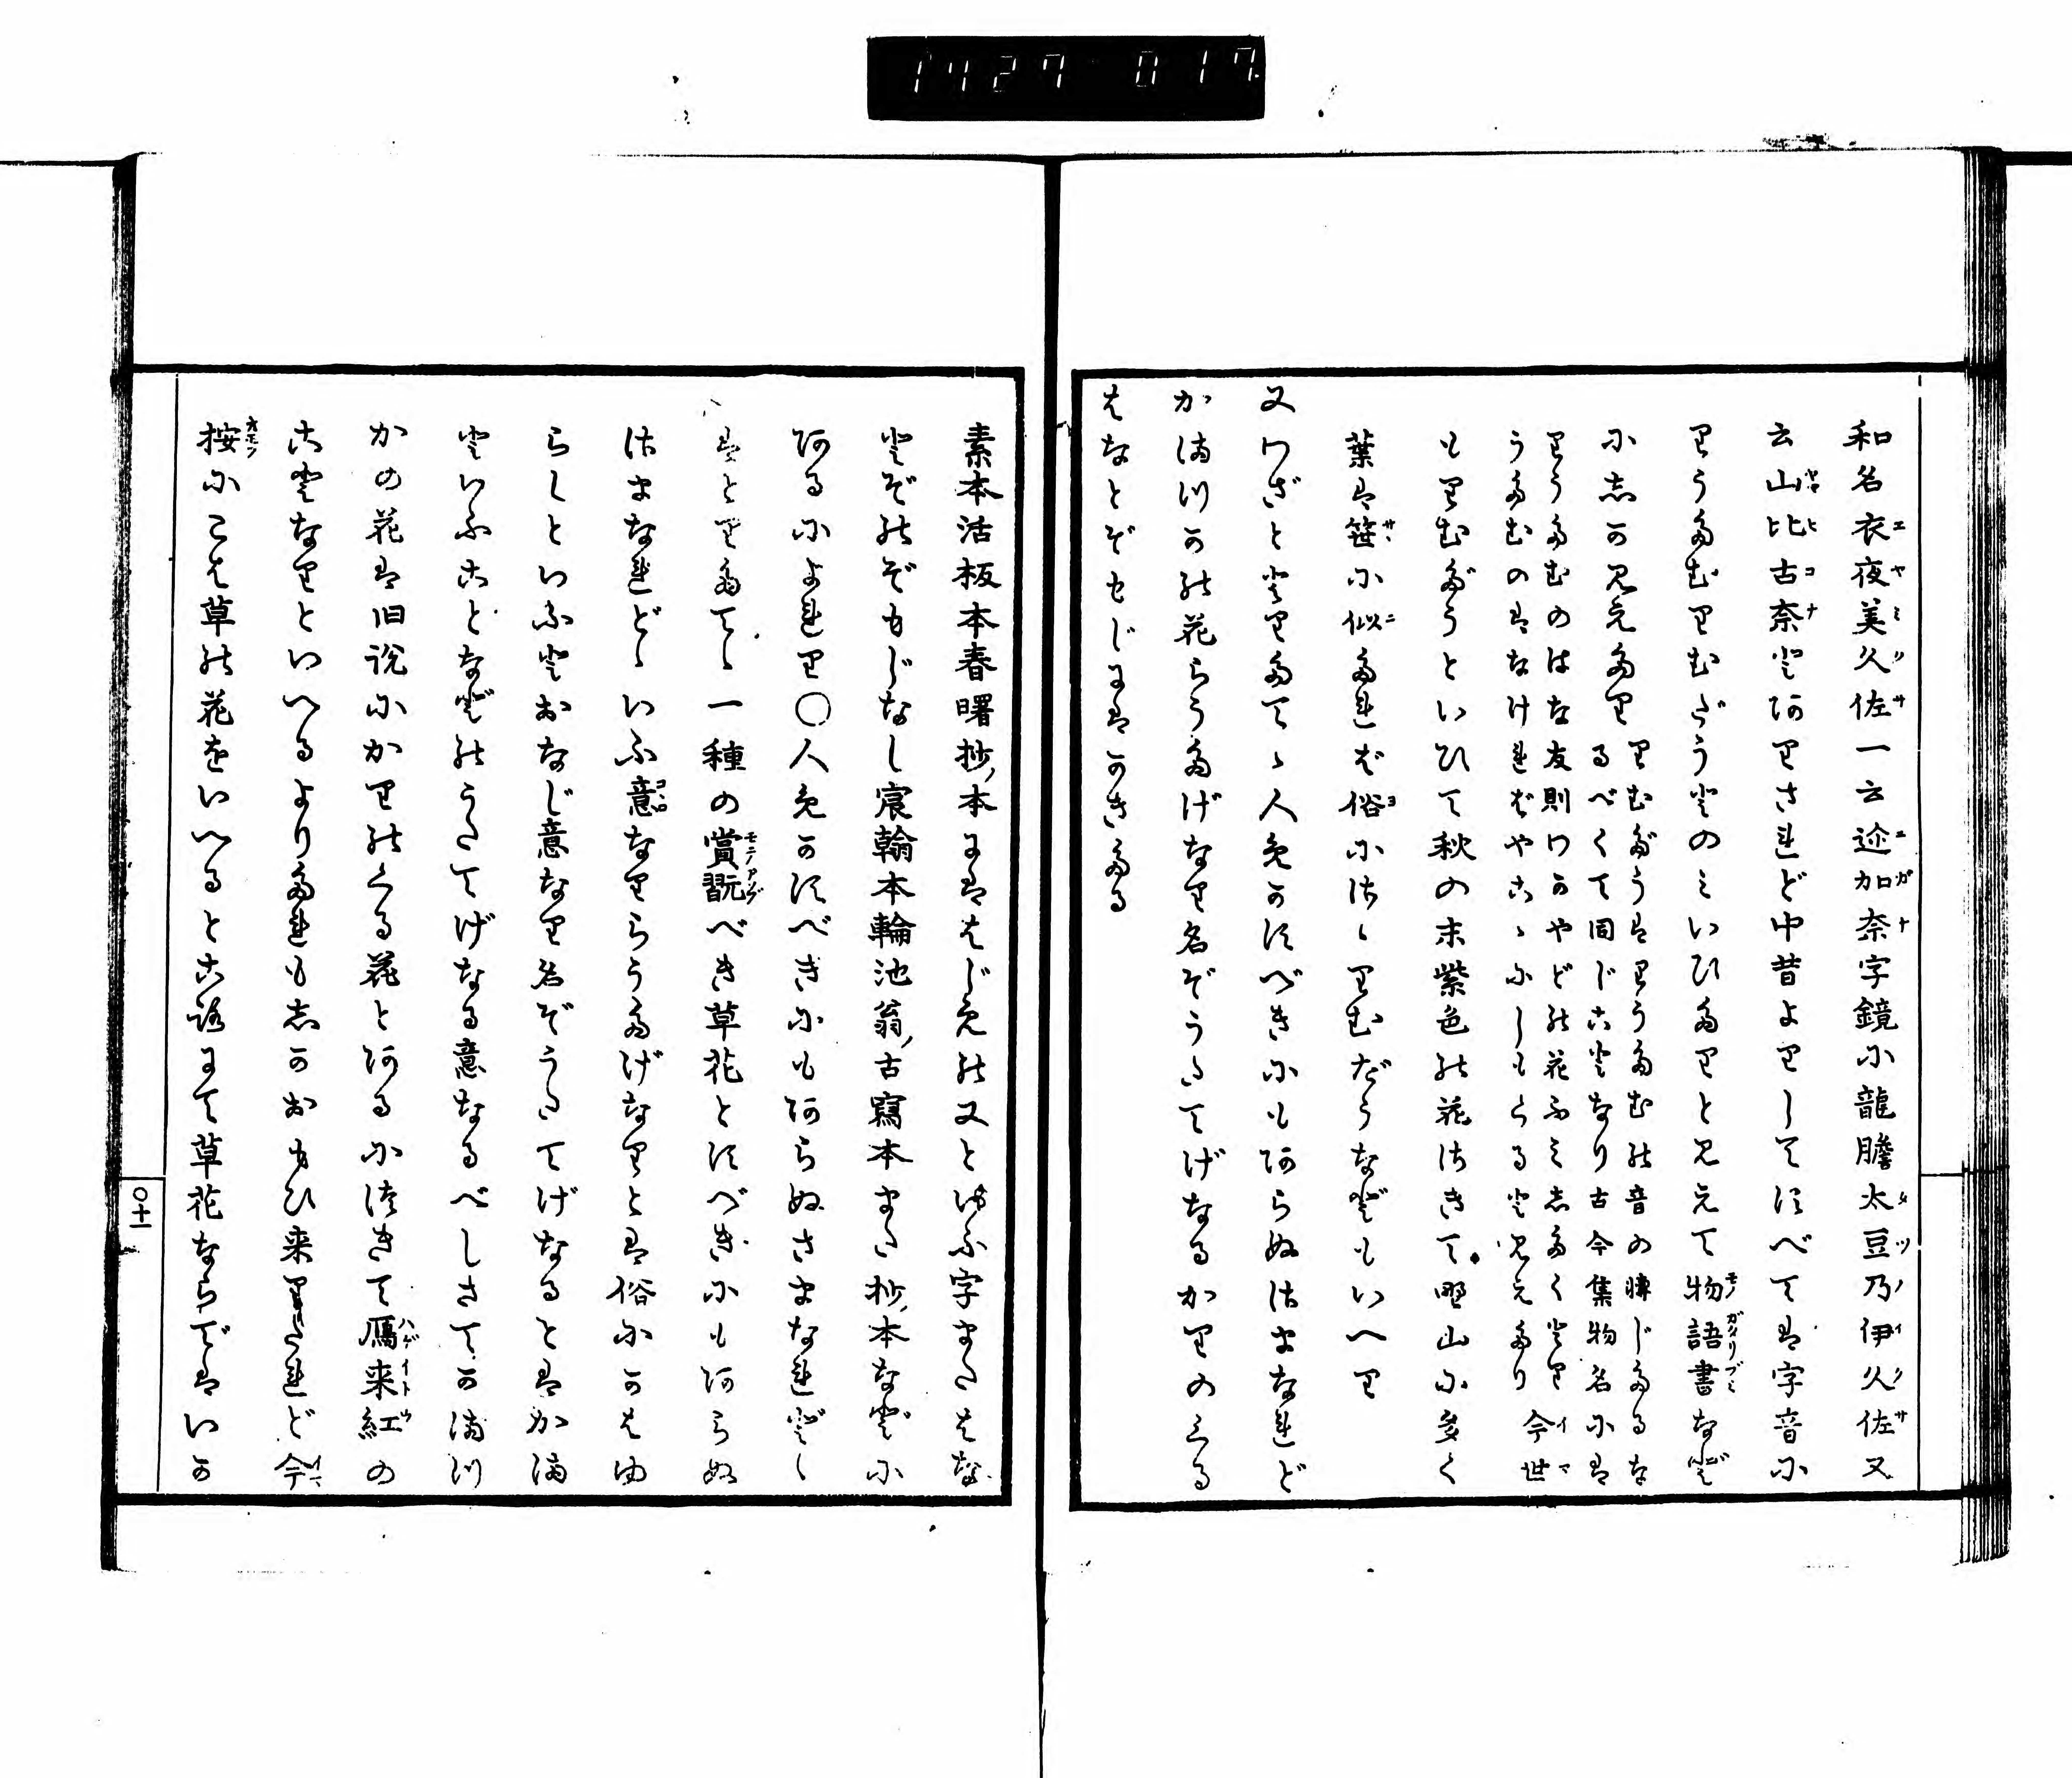 1427 017
和名衣夜美久佐一云迩加奈字鏡に龍膽太豆乃伊久佐又
云山比古奈とありされど中昔よりしてすべては字音に
りうたむりむだうとのみいひたりと見えて物語書など
にしか見えたり りむだうはりうたむの音の轉じたるな
るべくて同じことなり古今集物名には
りうたむのはな友則わかやどの花ふみしたくとり
うたむのはなければやこゝにしもくると見えたり 今世
もりむだうといひて秋の末紫色の花さきて野山に多く
葉は笹に似たれば俗にさゝりむだうなどもいへり
又わざととりたてゝ人めかすべきにもあらぬさまなれど
かまつかの花らうたげなり名ぞうたてげなるかりのくる
はなとぞもじにはかきたる
素本活板本春曙抄本にははじめの又といふ字またはな
とぞのぞもじなし宸翰本輪池翁古寫本また抄本などに
あるによれり〇人めかすべきにもあらぬさまなれどゝ
はとりたてゝ一種の賞翫べき草花とすべきにもあらぬ
さまなれどゝいふ意なりらうたげなりとは俗にかはゆ
らしといふとおなじ意なり名ぞうたてげなるとはか満
といふことなどのうたてげなる意なるべしさてかまつ
かの花は旧説にかりのくる花とあるにつきて鴈来紅の
ことなりといへるよりたれもしかおもひ来りたれど今
按にこは草の花をいへるところにて草花ならではいか
〇十一